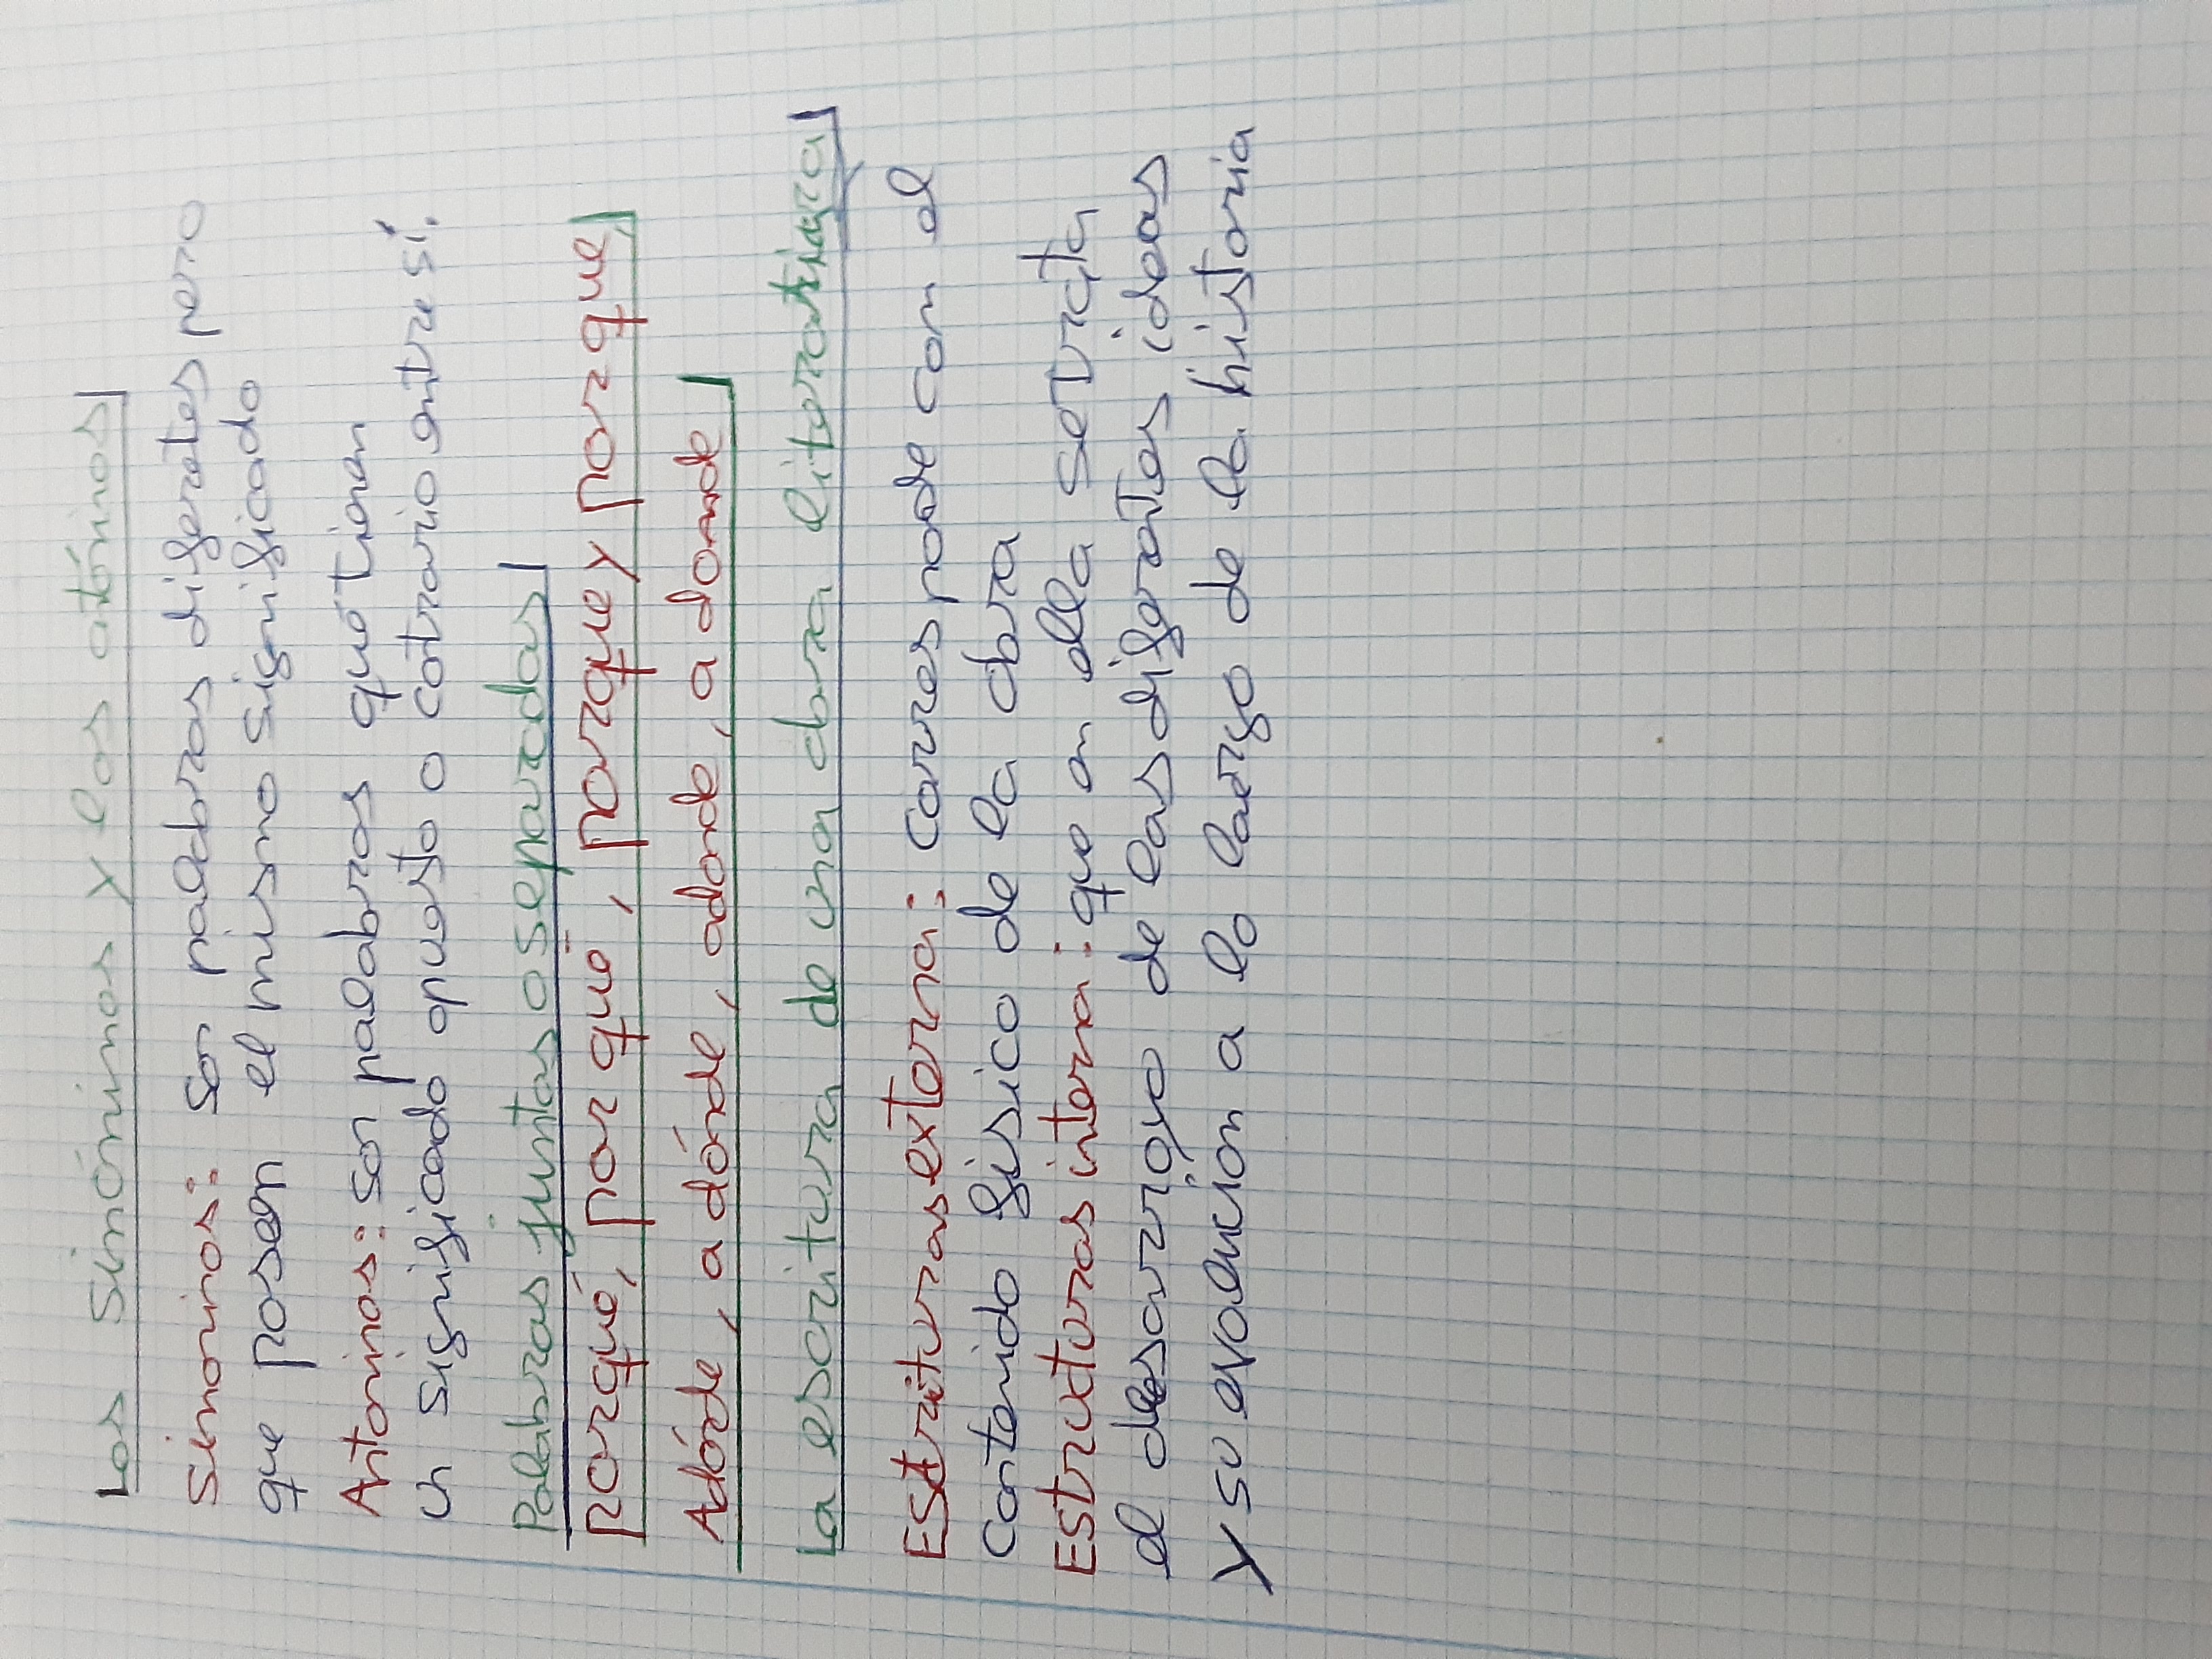 Los sinóninos y los atóninos
Sinoninos: son palabras diferetes pero
que poseen el mismo significado
Antoninos: son palabras que tienen
un significado opuesto o cotrario entre sí.
Palabras juntas o separadas
porqué, por qué, porque y por que,
Adónde, a dónde, adonde, a donde
La escritura de una obra
Estrituras externa: correspode con el
contenido fisico de la obra
Estructuras interna: que en ella se trata
el desarroyo de las diferates ideas
y su evolución a lo largo de la historia